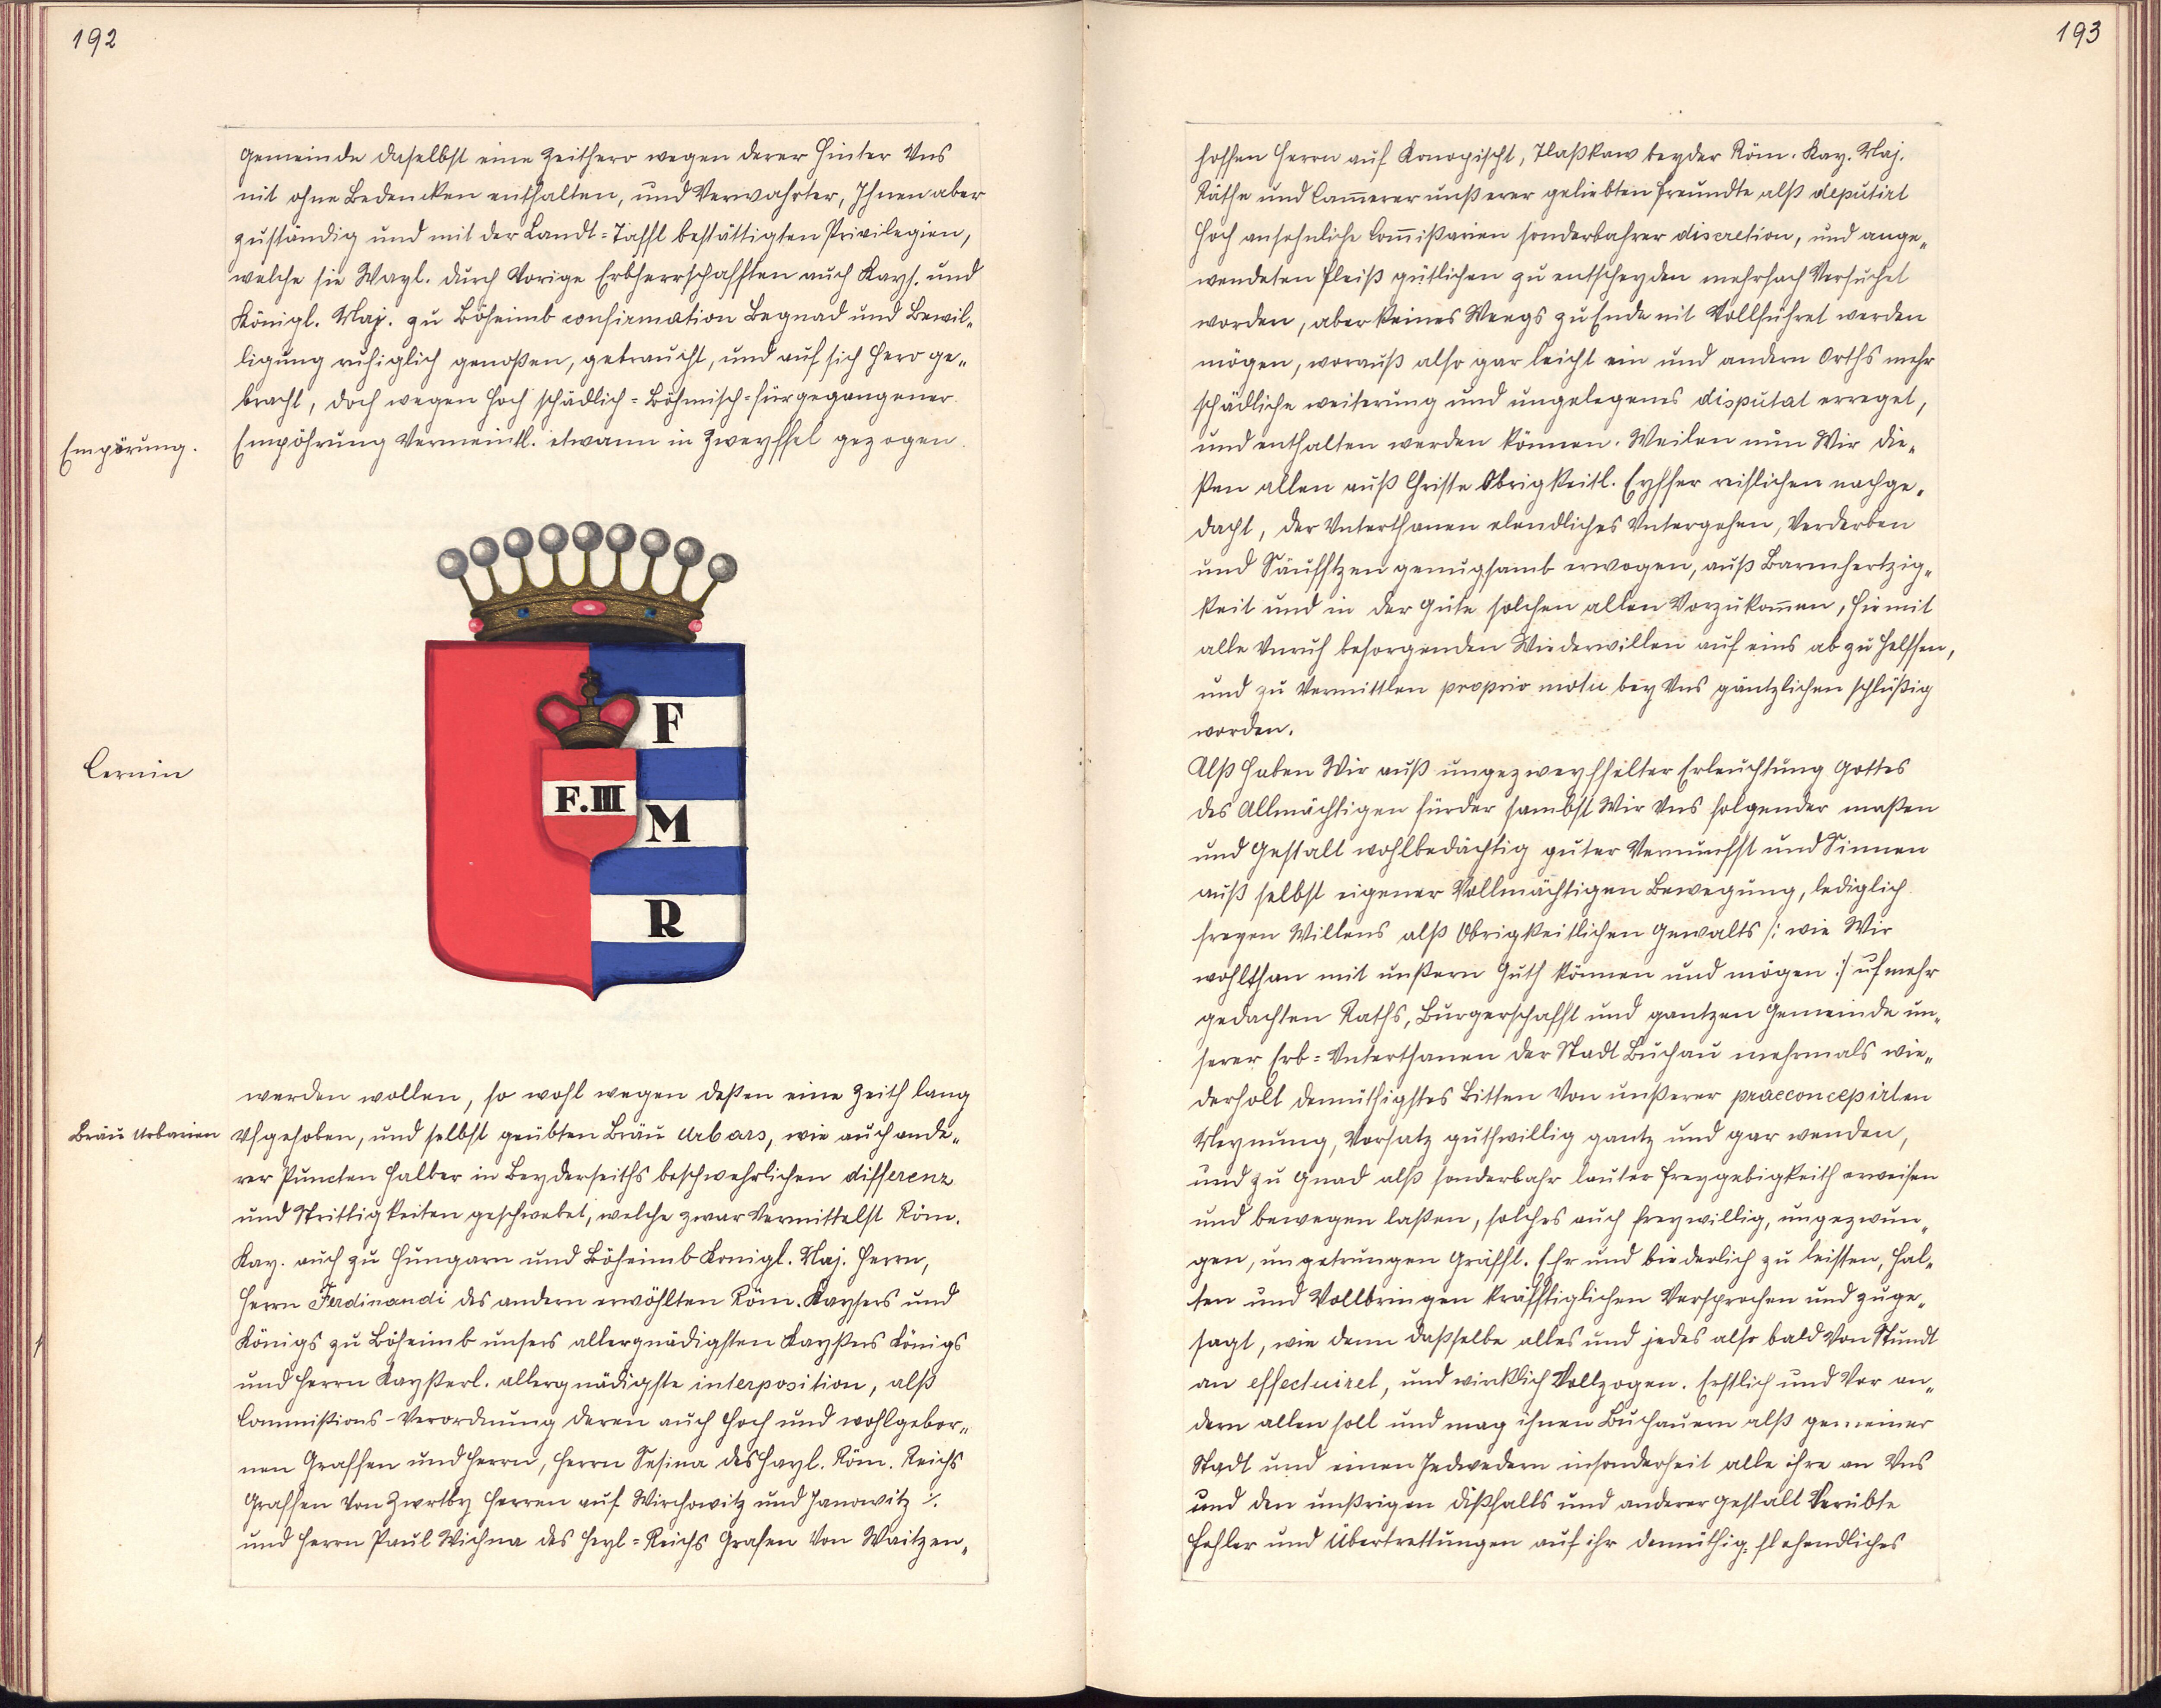 192
Gemeinde daselbst eine Zeithero wegen derer hinter Vns
nit ohne Bedencken enthalten, und Verwahrter, Ihnen aber
zuständig und mit der Landt=Taffl bestättigten Privilegien,
welche sie Wayl. durch Vorige Erbherrschafften auch Kays. und
Königl. Maj. zu Böheimb confirmation Begnad und Bewil„
ligung ruhiglich genoßen, gebraucht, und auf sich hero ge„
bracht, doch wegen hoch schädlich=Böhmisch=fürgegangener
Empörung.
Empöhrung Vermeintl. etwann in Zweyffel gezogen
F
F.III
M
R
Cernin
werden wollen, so wohl wegen deßen eine Zeith lang
Bräu Urbarien
Vfgehoben, und selbst geübten Bräu Urbars, wie auch ande„
rer Puncten halber in Beyderseiths beschwehrlichen differenz
und Strittigkeiten geschwebet, welche zwar Vermittelst Röm.
Kay. auch zu Hungarn und Böheimb Konigl. Maj. Herrn,
Herrn Ferdinandi des andern erwöhlten Röm. Kaysers und
Königs zu Böheimb unsers allergnädigsten Kayßers Königs
und Herrn Kayßerl. allergnädigste interposition, alß
Commißions-Verordnung deren auch Hoch und wohlgebor„
nen Graffen und Herrn, Herrn Sesina des Hayl. Röm. Reichs
Graffen Von Zwrtby Herren auf Wirchowitz und Janowitz ⁒.
und Herrn Paul Wichna des Heyl=Reichs Grafen Von Waitzen„
193
hoffen Herrn auf Konopischt, Tlaßkaw beyder Röm. Kay. Maj.
Räthe und Cam̅erer unßerer geliebten Freundte alß deputirt
Hoch ansehnliche Com̅ißarien sonderbahrer discretion, und ange„
wendeten Fleiß gütlichen zu entscheyden mehrfach Versuchet
worden, aber keines Weegs zu Ende nit Vollführet werden
mögen, worauß also gar leicht ein und andern Orths mehr
schädliche weiterung und ungelegenes disputat erreget,
und enthalten werden können. Weilen nun Wir die„
ßen allen auß Christe Obrigkeitl. Eyffer reiflichen nachge„
dacht, der Vnterthanen elendliches Vntergehen, Verderben
und Säufftzen genugsamb erwogen, auß Barmhertzig„
keit und in der Güte solchen allen Vorzukom̅en, hiemit
alle Vnruh besorgenden Wiederwillen auf eins ab zu helffen,
und zu Vermittlen proprio motu bey Vns gäntzlichen schlüßig
worden.
Alß haben Wir auß ungezweyffelter Erleuchtung Gottes
des Allmächtigen fürder sambst Wir Vns folgender maßen
und Gestalt wohlbedächtig guter Vernunfft und Sinnen
auß selbst eigener Vollmächtigen Bewegung, lediglich
freyen Willens alß Obrigkeitlichen Gewalts /: wie Wir
wohlthan mit unßern Guth können und mögen :/ uf mehr
gedachten Raths, Burgerschafft und gantzen Gemeinde un„
serer Erb=Vnterthanen der Stadt Buchau mehrmals wie„
derholt demüthigstes Bitten Von unßerer praeconcepirten
Meynung, Vorsatz guthwillig gantz und gar wenden,
und zu Gnad alß sonderbahr lauter Freygebigkeith erweisen
und bewegen laßen, solches auch freywillig, ungezwun„
gen, ungetrungen Gräffl. Ehr und biederlich zu leisten, hal„
ten und Vollbringen kräfftiglichen Versprochen und zuge„
sagt, wie denn daßselbe alles und jedes also bald Von Stundt
an effectuiret, und wircklich Vollzogen. Erstlich und Vor an„
dern allen soll und mag ihnen Buchauern alß gemeiner
Stadt und einen Jedwedern insonderheit alle ihre an Vns
und den unßrigen dißfalls und anderer gestalt Verübte
Fehler und Übertrettungen auf ihr demüthig=flehendliches